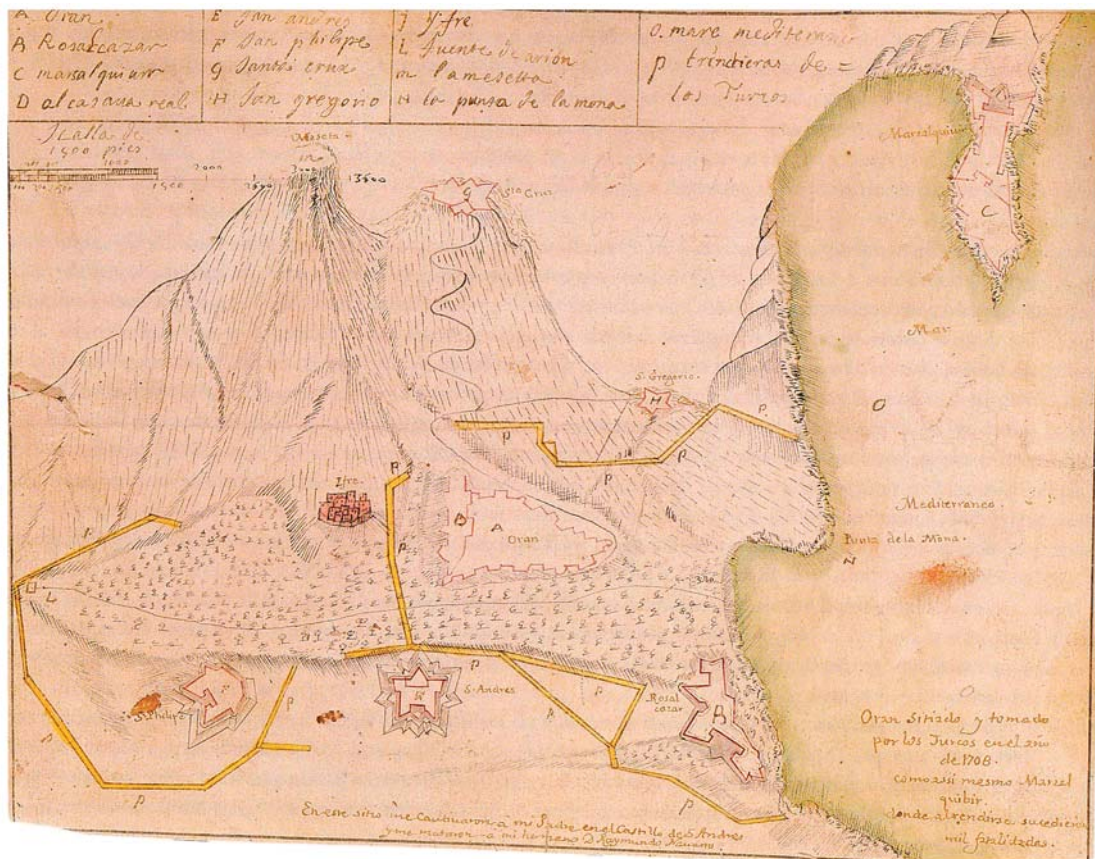 A Oran
B Rosalcazar
C marsalquiuir
D alcasaua real
E San andres
F San phelipe
G Santa crux
H San gregorio
J yfre
L fuente de arión
m lameseta
N la punta de la mona
O. mare mediterraneo
P trinchieras de =
los Turcos
Scalla de
1500 pies
1000
1500
2000
Meseta
m
G
Sta Cruz
Marsalquiuir
C
Mar
O
S. Gregorio.
H
P
P
P
P
P
Ifre.
P
P
D
A
Oran
Mediterraneo.
Punta de la Mona.
N
P
L
F
S. Phelipe
P
P
P
S. Andres
P
P
Rosal
cazar
B
P
Oran sitiado y tomado
por los Turcos en el año
de 1708.
como assi mesmo Marzel
quibir.
donde al rendirse sucedieron
mil fatalidades.
En este sitio me Cautiuaron a mi Padre en el Castillo de S. Andres
y me mataron a mi hermano D. Raymundo Nauarro